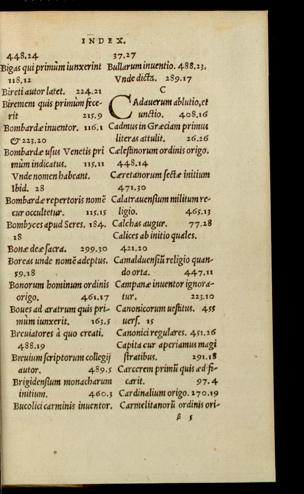 INDEX.
448.24
Bigas qui primùm iunxerint
118.12
Bireti autor latet. 224.21
Biremem quis primùm fece-
rit 215.9
Bombardæ inuentor. 116.1
& 223.20
Bombardæ usus Venetis pri
mùm indicatus. 115.11
Vnde nomen habeant.
Ibid. 28
Bombardæ repertoris nomē
cur occultetur. 115.15
Bombyces apud Seres. 184.
18
Bonæ deæ sacra. 299.30
Boreas unde nomē adeptus.
59.18
Bonorum hominum ordinis
origo. 461.17
Boues ad aratrum quis pri-
mùm iunxerit. 163.5
Breuiatores à quo creati.
488.19
Breuium scriptorum collegij
autor. 489.5
Brigidensium monacharum
initium. 460.3
Bucolici carminis inuentor.
37.27
Bullarum inuentio. 488.23.
Vnde dicta. 289.17
C
Cadauerum ablutio, et
unctio. 408.16
Cadmus in Græciam primus
literas attulit. 26.26
Cælestinorum ordinis origo.
448.14
Cæretanorum sectæ initium
471.30
Calatrauensium militum re-
ligio. 465.13
Calchas augur. 77.28
Calices ab initio quales.
421.20
Camaldulensiū religio quan-
do orta. 447.11
Campanæ inuentor ignora-
tur. 223.10
Canonicorum uestitus. 455
uers. 15
Canonici regulares. 451.26
Capita cur aperiamus magi
stratibus. 291.18
Carcerem primū quis ædifi-
carit. 97.4
Cardinalium origo. 270.19
Carmelitanorū ordinis ori-
β 5